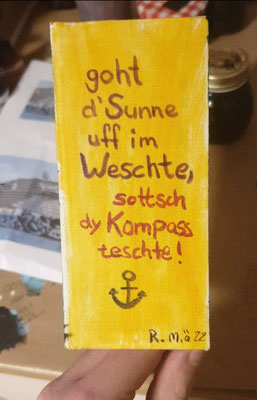 goht
d'Sunne
uff im
Weschte,
sottsch
dy Kompass
teschte!
R. M.ö 22